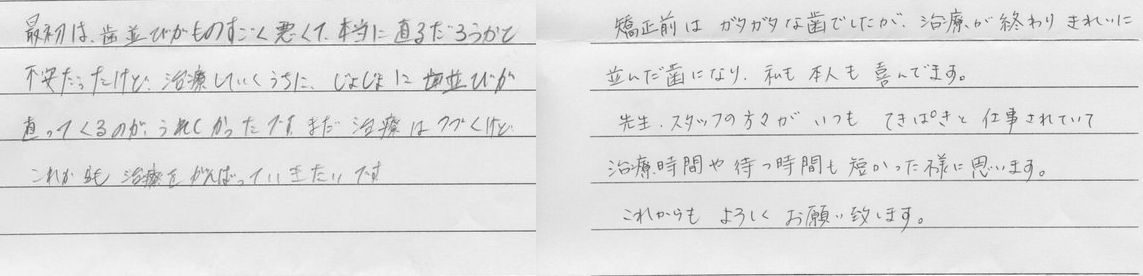 最初は、歯並びがものすごく悪くて、本当に直るだろうかと
不安だったけど、治療していくうちに、じょじょに歯並びが
直ってくるのが、うれしかったです。まだ治療はつづくけど、
これからも治療をがんばっていきたいです
矯正前はガタガタな歯でしたが、治療が終わりきれいに
並んだ歯になり、私も本人も喜んでます。
先生、スタッフの方々がいつもてきぱきと仕事されていて
治療時間や待つ時間も短かった様に思います。
これからもよろしくお願い致します。